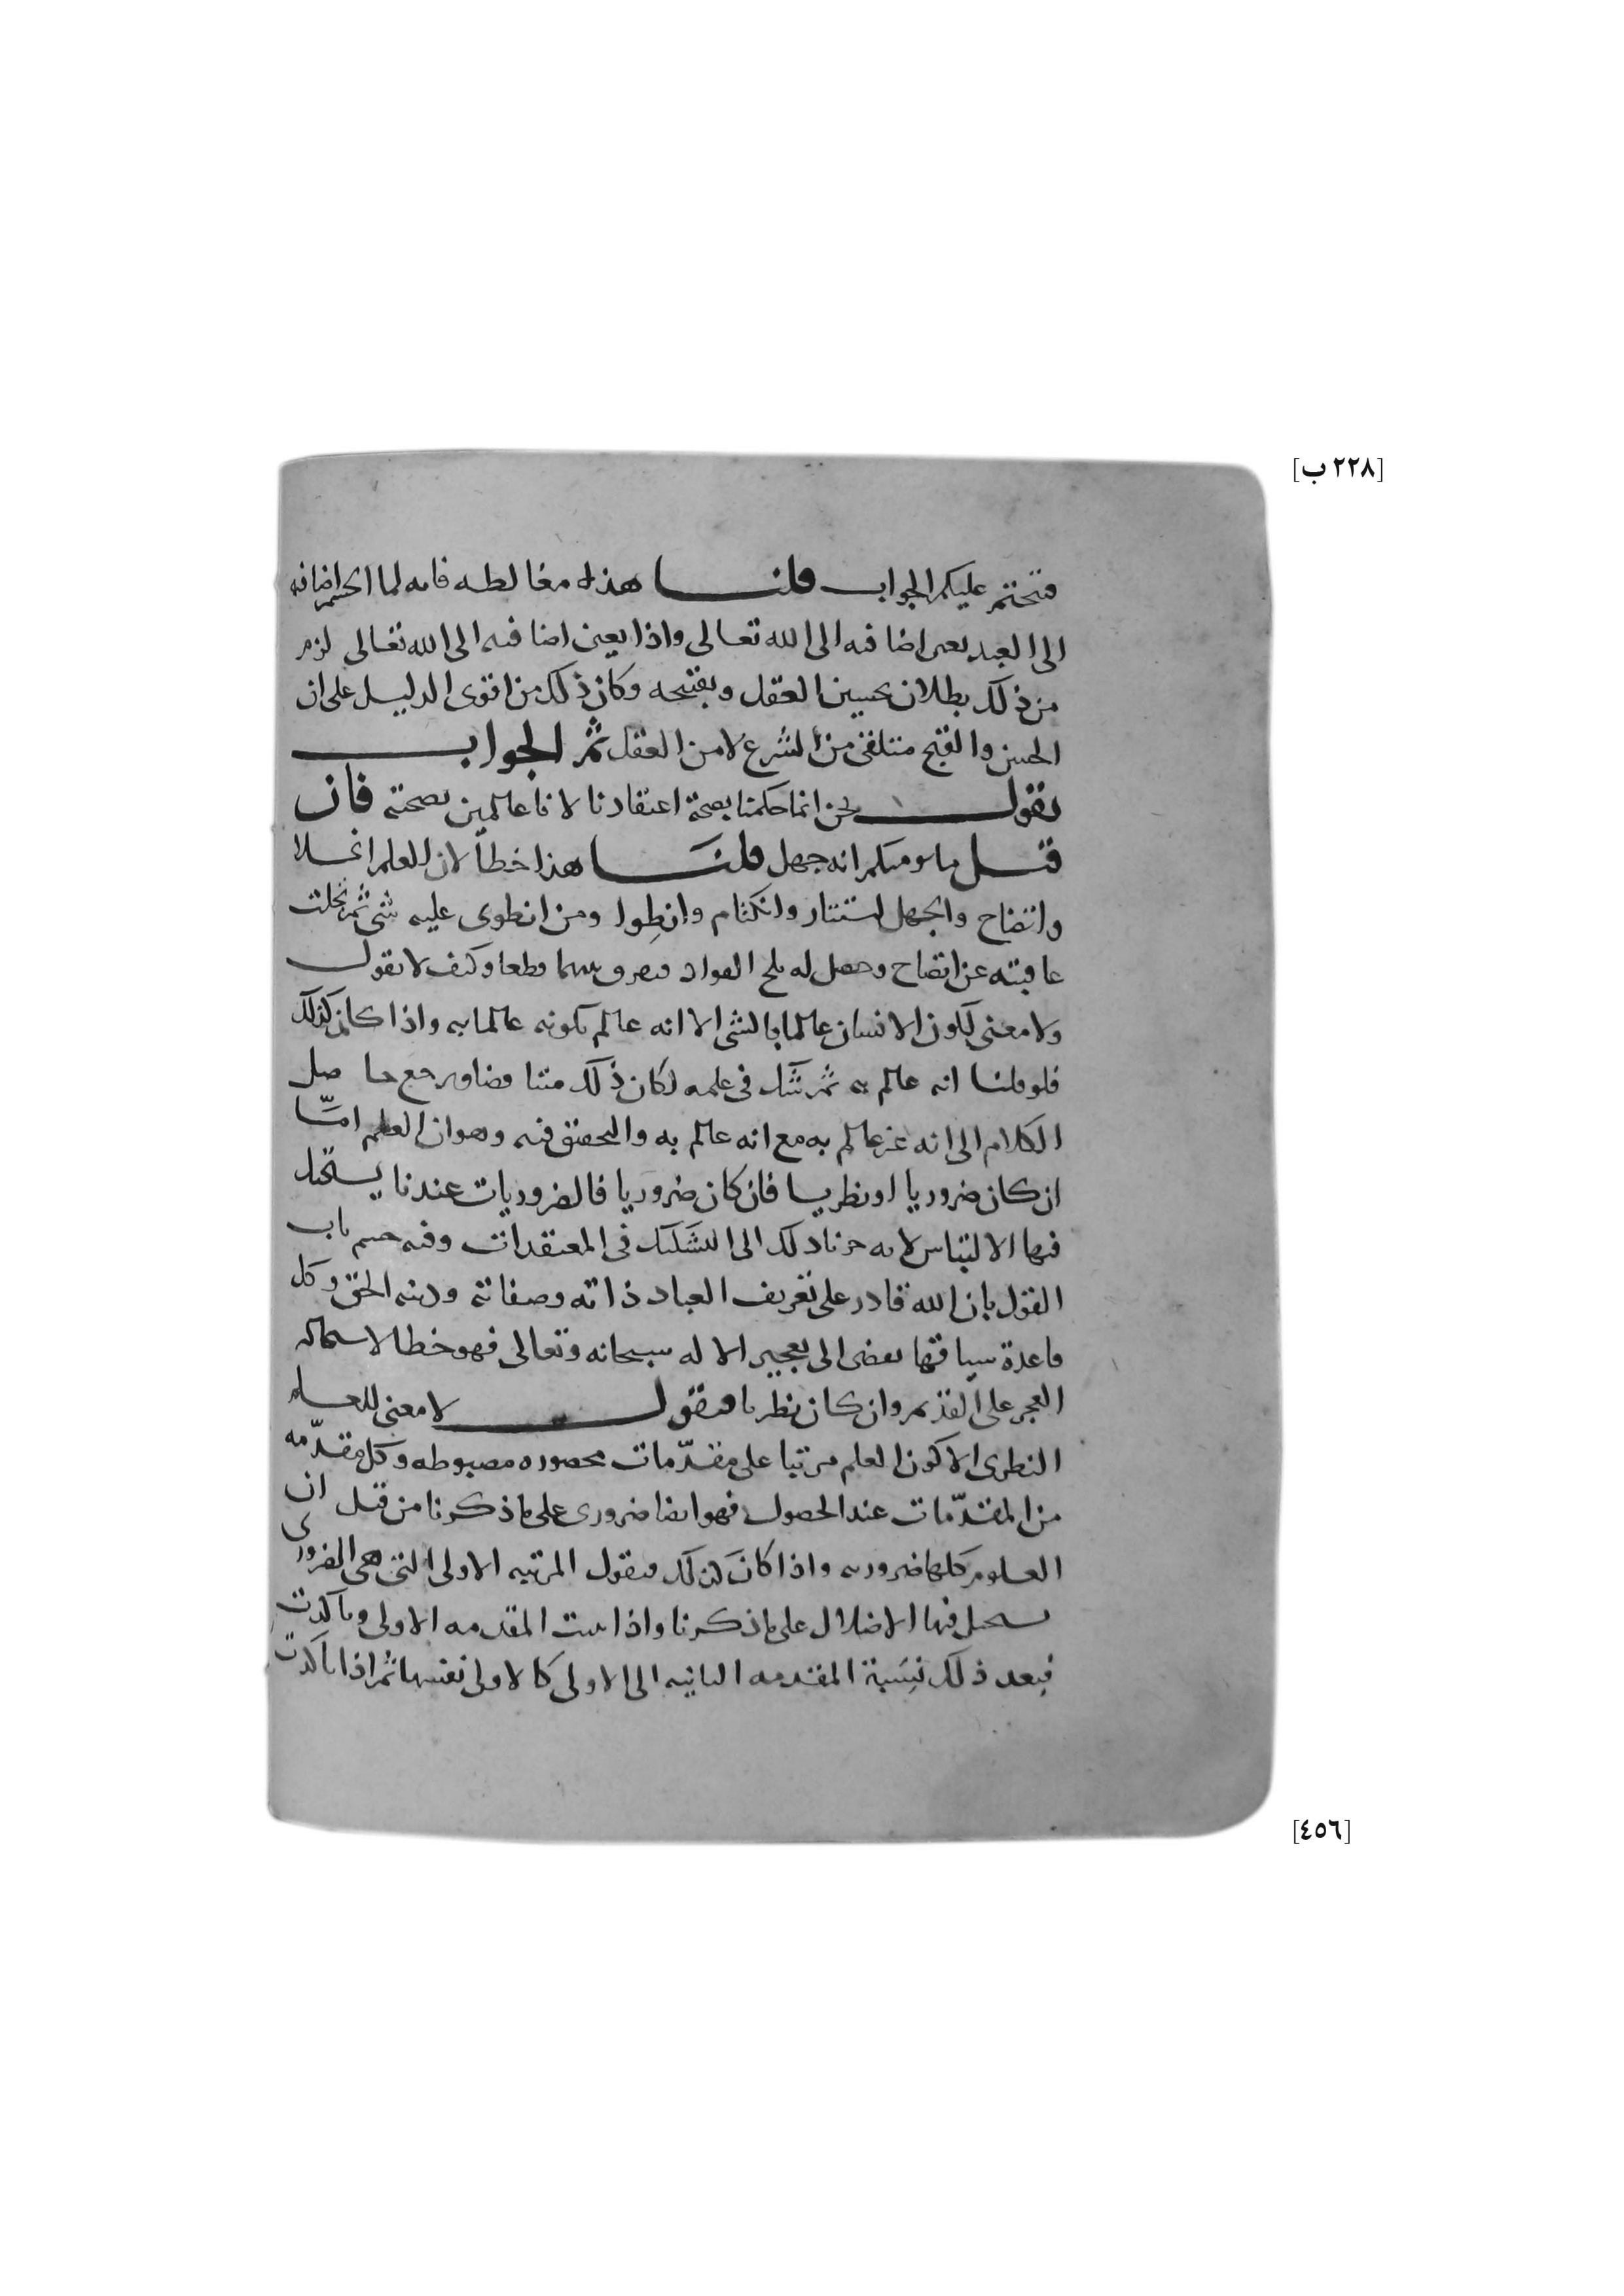 [٢٢٨ ب]
فتحتم عليكم الجواب قلنا هذه مغالطه فانه لما انحسم اضافته
الى العبد تعين اضافته الى الله تعالى واذا تعين اضافته الى الله تعالى لزم
من ذلك بطلان تحسين العقل وتقبيحه وكان ذلك من اقوى الدليل على ان
الحسن والقبح متلقى من الشرع لا من العقل ثم الجواب
نقول نحن انما حكمنا بصحة اعتقادنا لانا عالمين بصحته فان
قيل ما يومنكم انه جهل قلنا هذا خطأ لان العلم انجلا
واتضاح والجهل استتار وانكتام وانطوا ومن انطوى عليه شى ثم تجلت
عاقبته عن اتضاح وحصل له ثلج الفواد فيفرق بينهما قطعا وكيف لا نقول
ولا معنى لكون الانسان عالما بالشى الا انه عالم بكونه عالما به واذا كان كذلك
فلو قلنا انه عالم به ثم شك فى علمه لكان ذلك متناقضا ويرجع حاصل
الكلام الى انه غير عالم به مع انه عالم به والتحقيق فيه وهو ان العلم امّا
ان كان ضروريا او نظريا فان كان ضروريا فالضروريات عندنا يستحيل
فيها الالتباس لانه جرنا ذلك الى التشكيك فى المعتقدات وفيه حسم باب
القول بان الله قادر على تعريف العباد ذاته وصفاته ودينه الحق وكل
قاعدة سياقها يفضى الى تعجيز الاله سبحانه وتعالى فهو خطا لاستحاله
العجز على القديم وان كان نظريا فنقول لا معنى للعلم
النظرى الا كون العلم مرتبا على مقدّمات محصوره مضبوطه وكل مقدّمه
من المقدّمات عند الحصول فهو ايضا ضرورى على ما ذكرنا من قبل ان
العلوم كلها ضروريه واذا كان كذلك فنقول المرتبه الاولى التى هى الضرورى
يستحيل فيها الاضلال على ما ذكرنا واذا ثبتت المقدمه الاولى وتأكدت
فبعد ذلك نسبة المقدمه الثانيه الى الاولى كالاولى نفسها ثم اذا تأكدت
[٤٥٦]